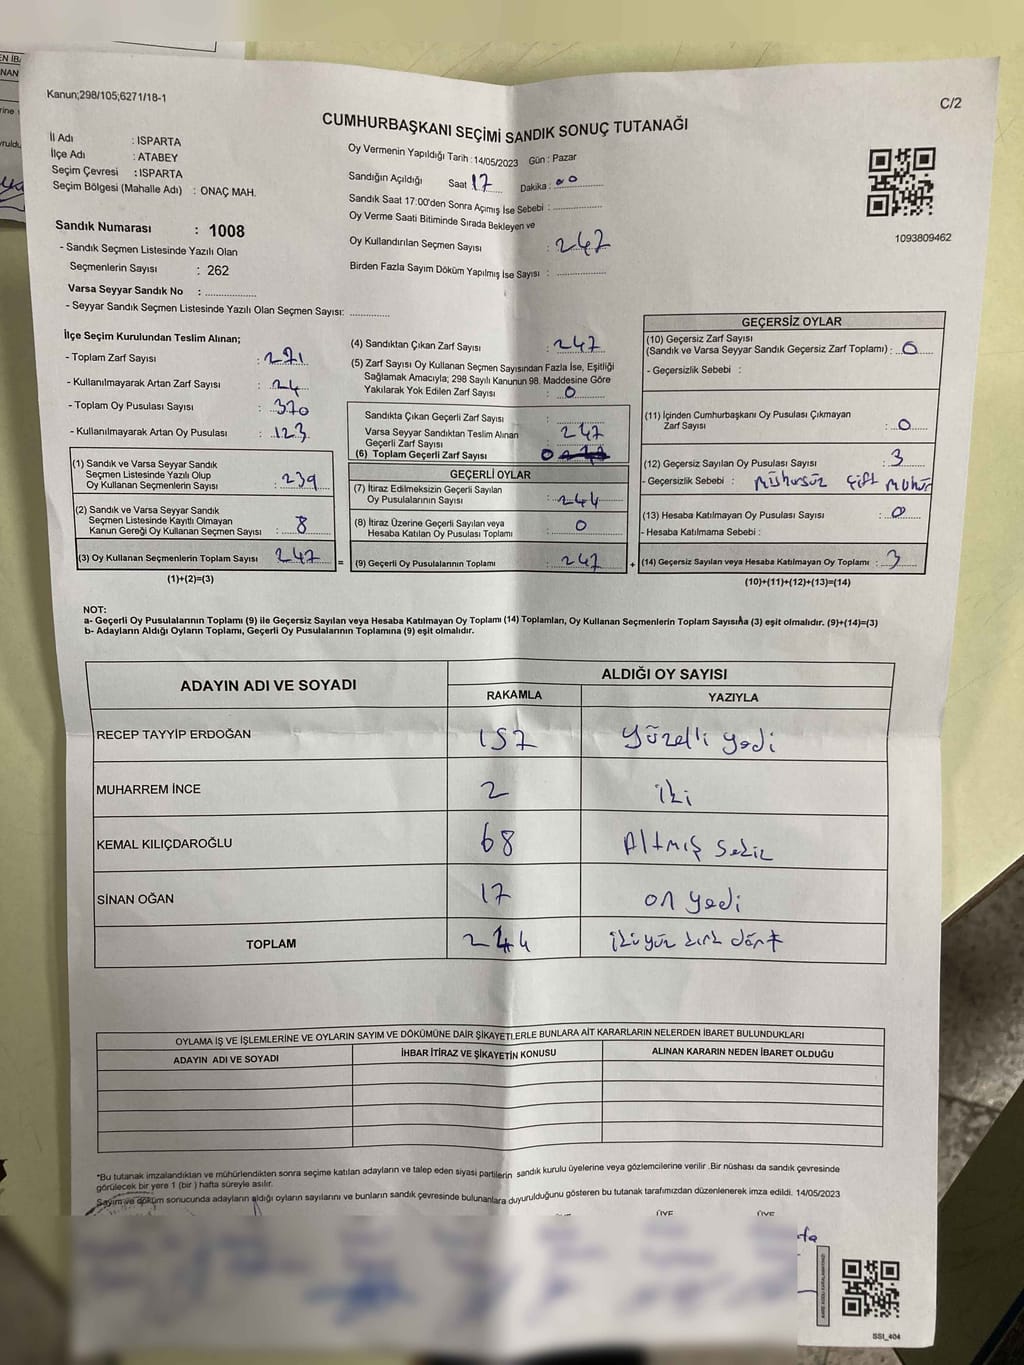 Kanun;298/105;6271/18-1
C/2
CUMHURBAŞKANI SEÇİMİ SANDIK SONUÇ TUTANAĞI
İl Adı : ISPARTA
İlçe Adı : ATABEY
Seçim Çevresi : ISPARTA
Seçim Bölgesi (Mahalle Adı) : ONAÇ MAH.
Sandık Numarası : 1008
- Sandık Seçmen Listesinde Yazılı Olan
Seçmenlerin Sayısı : 262
Varsa Seyyar Sandık No :
- Seyyar Sandık Seçmen Listesinde Yazılı Olan Seçmen Sayısı:
Oy Vermenin Yapıldığı Tarih : 14/05/2023 Gün : Pazar
Sandığın Açıldığı Saat 17 Dakika : 00
Sandık Saat 17:00'den Sonra Açımış İse Sebebi :
Oy Verme Saati Bitiminde Sırada Bekleyen ve
Oy Kullandırılan Seçmen Sayısı : 247
Birden Fazla Sayım Döküm Yapılmış İse Sayısı :
1093809462
İlçe Seçim Kurulundan Teslim Alınan;
- Toplam Zarf Sayısı : 271
- Kullanılmayarak Artan Zarf Sayısı : 24
- Toplam Oy Pusulası Sayısı : 370
- Kullanılmayarak Artan Oy Pusulası : 123
(1) Sandık ve Varsa Seyyar Sandık
Seçmen Listesinde Yazılı Olup
Oy Kullanan Seçmenlerin Sayısı : 239
(2) Sandık ve Varsa Seyyar Sandık
Seçmen Listesinde Kayıtlı Olmayan
Kanun Gereği Oy Kullanan Seçmen Sayısı : 8
(3) Oy Kullanan Seçmenlerin Toplam Sayısı : 247 =
(1)+(2)=(3)
(4) Sandıktan Çıkan Zarf Sayısı : 247
(5) Zarf Sayısı Oy Kullanan Seçmen Sayısından Fazla İse, Eşitliği
Sağlamak Amacıyla; 298 Sayılı Kanunun 98. Maddesine Göre
Yakılarak Yok Edilen Zarf Sayısı : 0
Sandıkta Çıkan Geçerli Zarf Sayısı :
Varsa Seyyar Sandıktan Teslim Alınan
Geçerli Zarf Sayısı : 247
(6) Toplam Geçerli Zarf Sayısı : 0
GEÇERLİ OYLAR
(7) İtiraz Edilmeksizin Geçerli Sayılan
Oy Pusulalarının Sayısı : 244
(8) İtiraz Üzerine Geçerli Sayılan veya
Hesaba Katılan Oy Pusulası Toplamı : 0
(9) Geçerli Oy Pusulalarının Toplamı : 247 +
GEÇERSİZ OYLAR
(10) Geçersiz Zarf Sayısı
(Sandık ve Varsa Seyyar Sandık Geçersiz Zarf Toplamı) : 0
- Geçersizlik Sebebi :
(11) İçinden Cumhurbaşkanı Oy Pusulası Çıkmayan
Zarf Sayısı : 0
(12) Geçersiz Sayılan Oy Pusulası Sayısı : 3
- Geçersizlik Sebebi : Mühürsüz Çift Mühür
(13) Hesaba Katılmayan Oy Pusulası Sayısı : 0
- Hesaba Katılmama Sebebi :
(14) Geçersiz Sayılan veya Hesaba Katılmayan Oy Toplamı : 3
(10)+(11)+(12)+(13)=(14)
NOT:
a- Geçerli Oy Pusulalarının Toplamı (9) ile Geçersiz Sayılan veya Hesaba Katılmayan Oy Toplamı (14) Toplamları, Oy Kullanan Seçmenlerin Toplam Sayısına (3) eşit olmalıdır. (9)+(14)=(3)
b- Adayların Aldığı Oyların Toplamı, Geçerli Oy Pusulalarının Toplamına (9) eşit olmalıdır.
ADAYIN ADI VE SOYADI ALDIĞI OY SAYISI
RAKAMLA YAZIYLA
RECEP TAYYİP ERDOĞAN 157 yüzelli yedi
MUHARREM İNCE 2 iki
KEMAL KILIÇDAROĞLU 68 Altmış sekiz
SİNAN OĞAN 17 on yedi
TOPLAM 244 ikiyüz kırk dört
OYLAMA İŞ VE İŞLEMLERİNE VE OYLARIN SAYIM VE DÖKÜMÜNE DAİR ŞİKAYETLERLE BUNLARA AİT KARARLARIN NELERDEN İBARET BULUNDUKLARI
ADAYIN ADI VE SOYADI İHBAR İTİRAZ VE ŞİKAYETİN KONUSU ALINAN KARARIN NEDEN İBARET OLDUĞU
*Bu tutanak imzalandıktan ve mühürlendikten sonra seçime katılan adayların ve talep eden siyasi partilerin sandık kurulu üyelerine veya gözlemcilerine verilir .Bir nüshası da sandık çevresinde
görülecek bir yere 1 (bir ) hafta süreyle asılır.
Sayım ve döküm sonucunda adayların aldığı oyların sayılarını ve bunların sandık çevresinde bulunanlara duyurulduğunu gösteren bu tutanak tarafımızdan düzenlenerek imza edildi. 14/05/2023
ÜYE ÜYE
SSI_404